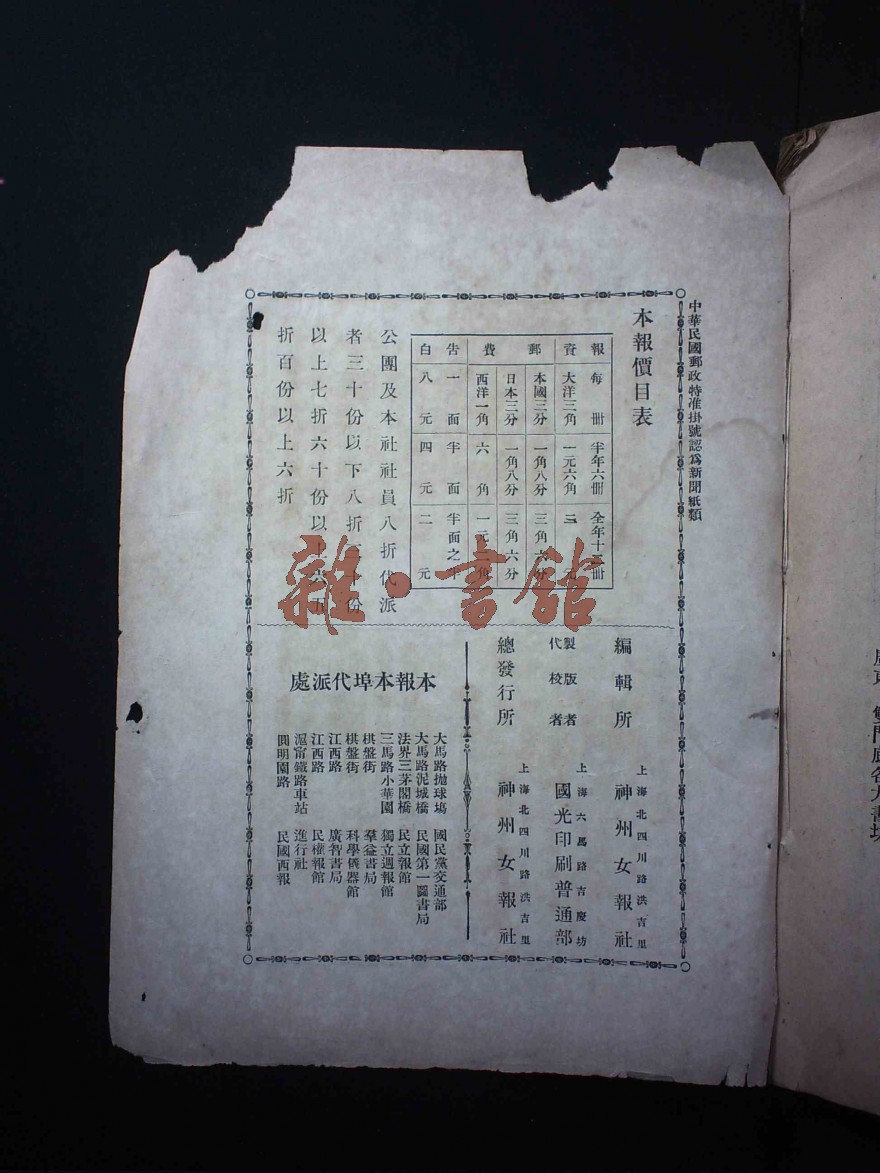 中華民國郵政特准掛號認爲新聞紙類
本報價目表
報資 郵費 告白
每冊 半年六冊 全年十二冊
大洋三角 一元六角 三元
本國三分 一角八分 三角六分
日本三分 一角八分 三角六分
西洋一角 六角 一元二角
一面 半面 半面之半
八元 四元 二元
公團及本社社員八折代派
者三十份以下八折三十份
以上七折六十份以上六五
折百份以上六折
編輯所
上海北四川路洪吉里
神州女報社
製版者
代校者
上海六馬路吉慶坊
國光印刷普通部
總發行所
上海北四川路洪吉里
神州女報社
本報本埠代派處
大馬路拋球塲 國民黨交通部
大馬路泥城橋 民國第一圖書局
法界三茅閣橋 民立報館
三馬路小華園 獨立週報館
棋盤街 羣益書局
棋盤街 科學儀器館
江西路 廣智書局
江西路 民權報館
滬甯鐵路車站 進行社
圓明園路 民國西報
雜·書館